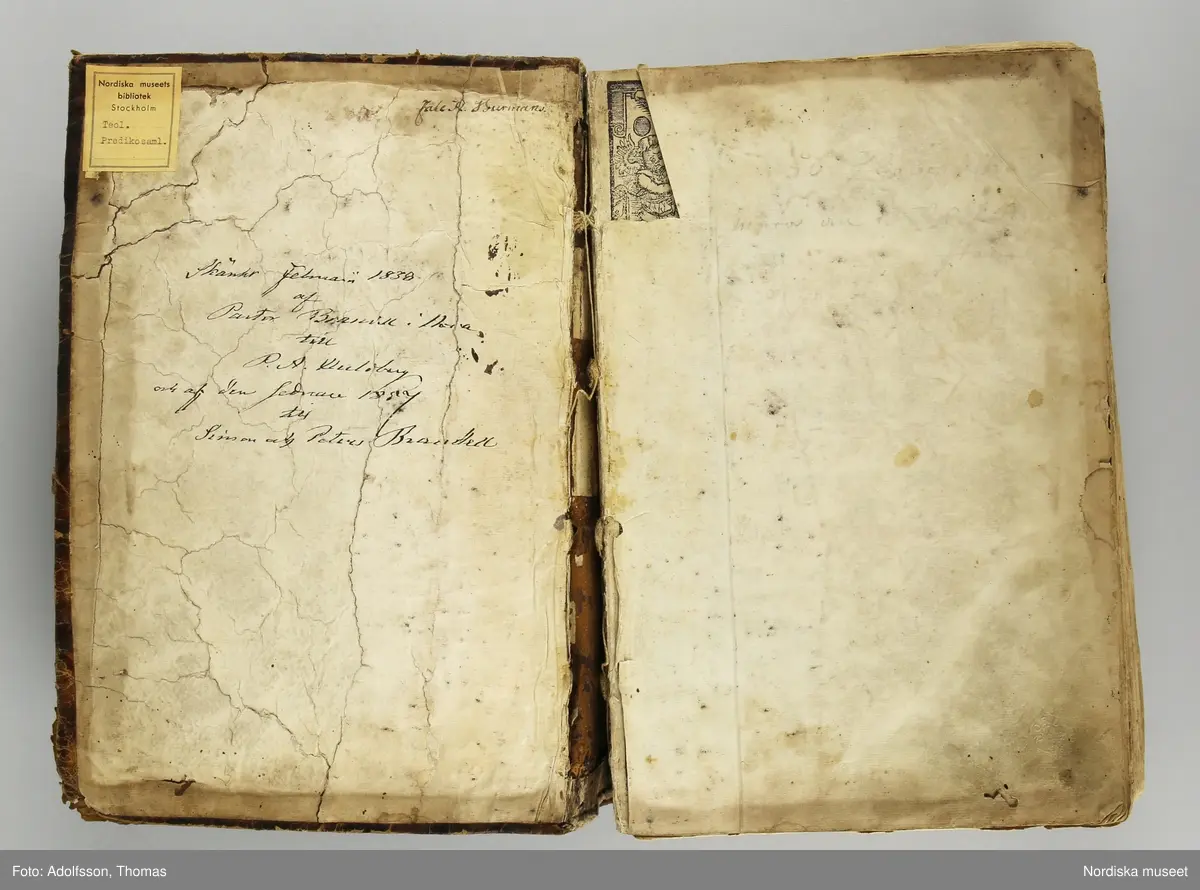 Nordiska museets
bibliotek
Stockholm
Teol.
Predikosaml.
Burmans
Skänkt Februari 1838
af
Pastor Brandell i Nora
till
P. A.
och af den sednare 1887
till
Simon och Peters Brandell
Foto: Adolfsson, Thomas
Nordiska museet